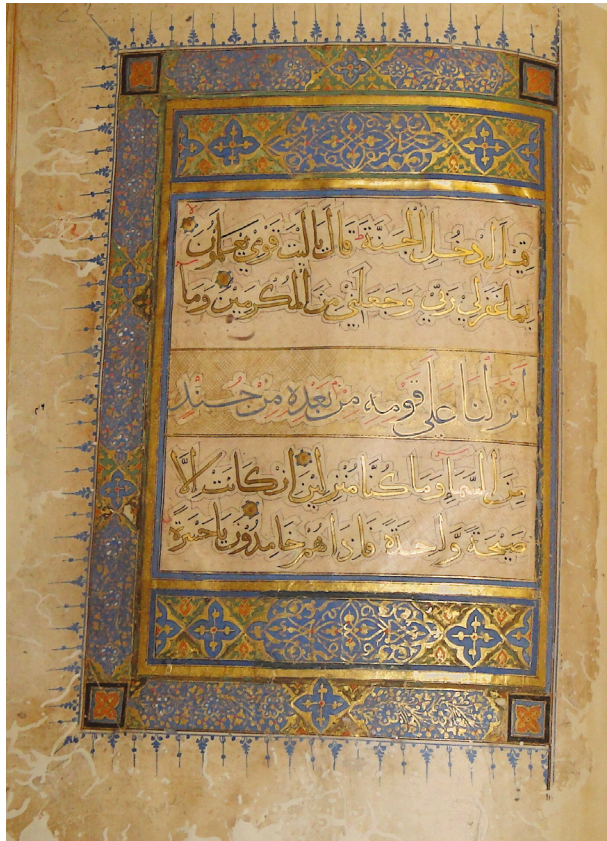 قِيلَ ادْخُلِ الْجَنَّةَ ط قَالَ يَا لَيْتَ قَوْمِي يَعْلَمُونَ
بِمَا غَفَرَ لِي رَبِّي وَجَعَلَنِي مِنَ الْمُكْرَمِينَ وَمَا
أَنْزَلْنَا عَلَى قَوْمِهِ مِنْ بَعْدِهِ مِنْ جُنْدٍ
مِنَ السَّمَاءِ وَمَا كُنَّا مُنْزِلِينَ إِنْ كَانَتْ إِلَّا
صَيْحَةً وَاحِدَةً فَإِذَا هُمْ خَامِدُونَ يَا حَسْرَةً